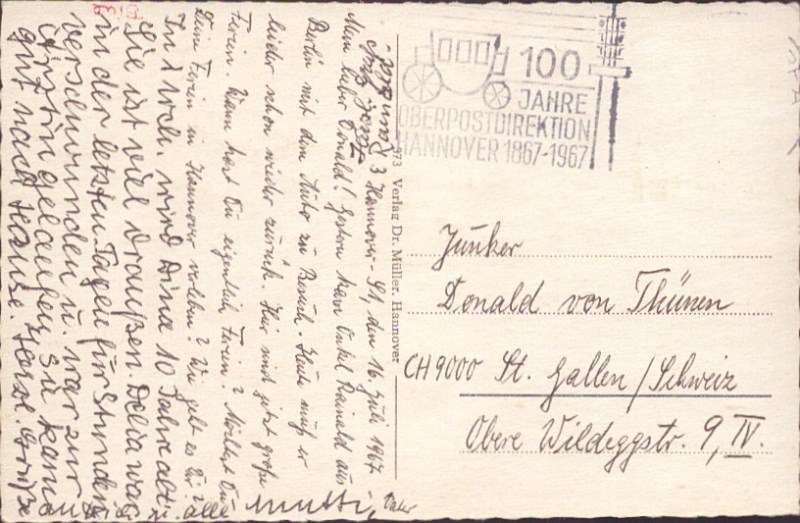 3 Hannover-St, den 16. Juli 1967
Mein lieber Donald! Gestern kam Onkel Rainald aus
Berlin mit dem Auto zu Besuch. Heute muß er
leider schon wieder zurück. Hier sind jetzt große
Ferien. Wann hast Du eigentlich Ferien? Möchtest Du
Deine Ferien in Hannover verleben? Wie geht es Dir?
In 1 Woch. wird Dina 10 Jahre alt.
Sie ist viel draußen. Delia war
in der letzten Tagen für Stunden
verschwunden u. war zur
gelaufen. Sie kam
gut nach Hause. Herzl. Grüße
alle
Mutti, Vater
973 Verlag Dr. Müller, Hannover
100
JAHRE
OBERPOSTDIREKTION
HANNOVER 1867-1967
Junker
Donald von Thünen
CH 9000 St. Gallen / Schweiz
Obere Wildeggstr. 9, IV.